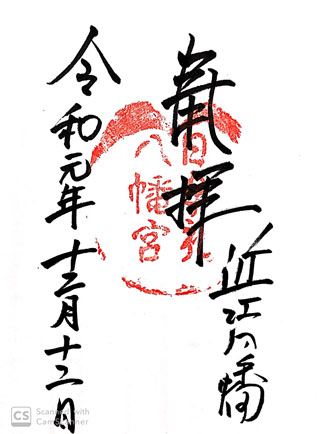 奉拝
近江八幡
日
八幡宮
令和元年十二月十二日
CS Scanned with
CamScanner